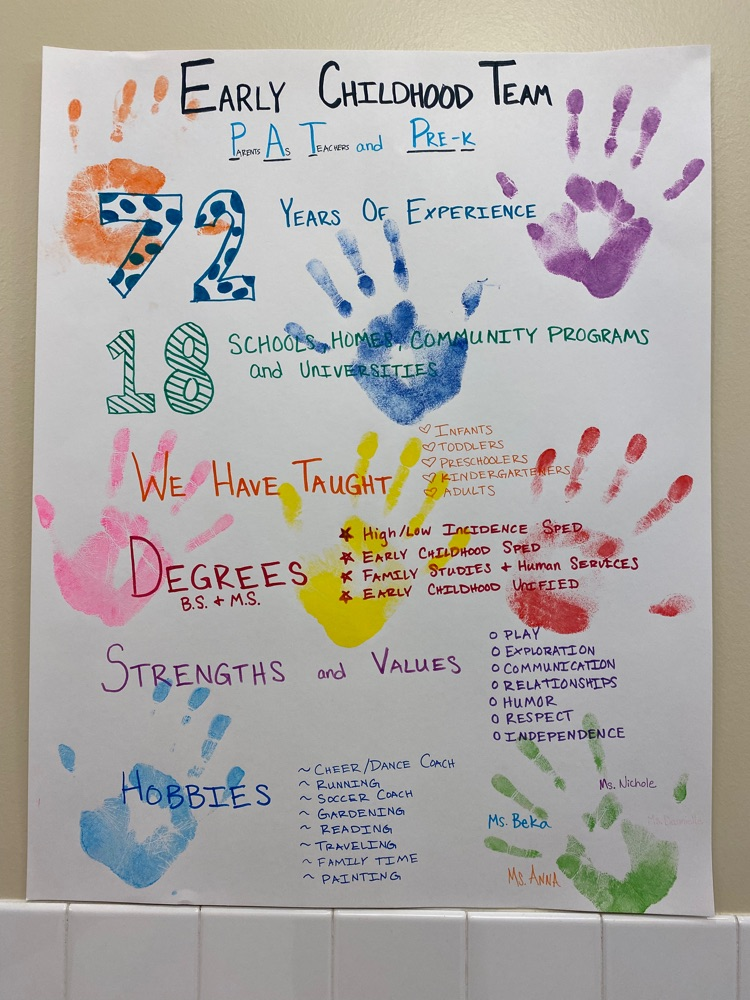 EARLY CHILDHOOD TEAM
PARENTS AS TEACHERS and PRE-K
72 YEARS OF EXPERIENCE
18 SCHOOLS, HOMES, COMMUNITY PROGRAMS
and UNIVERSITIES
WE HAVE TAUGHT
♡ INFANTS
♡ TODDLERS
♡ PRESCHOOLERS
♡ KINDERGARTENERS
♡ ADULTS
DEGREES
B.S. + M.S.
★ High/Low INCIDENCE SPED
★ EARLY CHILDHOOD SPED
★ FAMILY STUDIES + HUMAN SERVICES
★ EARLY CHILDHOOD UNIFIED
STRENGTHS and VALUES
O PLAY
O EXPLORATION
O COMMUNICATION
O RELATIONSHIPS
O HUMOR
O RESPECT
O INDEPENDENCE
HOBBIES
~ CHEER/DANCE COACH
~ RUNNING
~ SOCCER COACH
~ GARDENING
~ READING
~ TRAVELING
~ FAMILY TIME
~ PAINTING
Ms. Nichole
Ms. Beka
Ms. ANNA